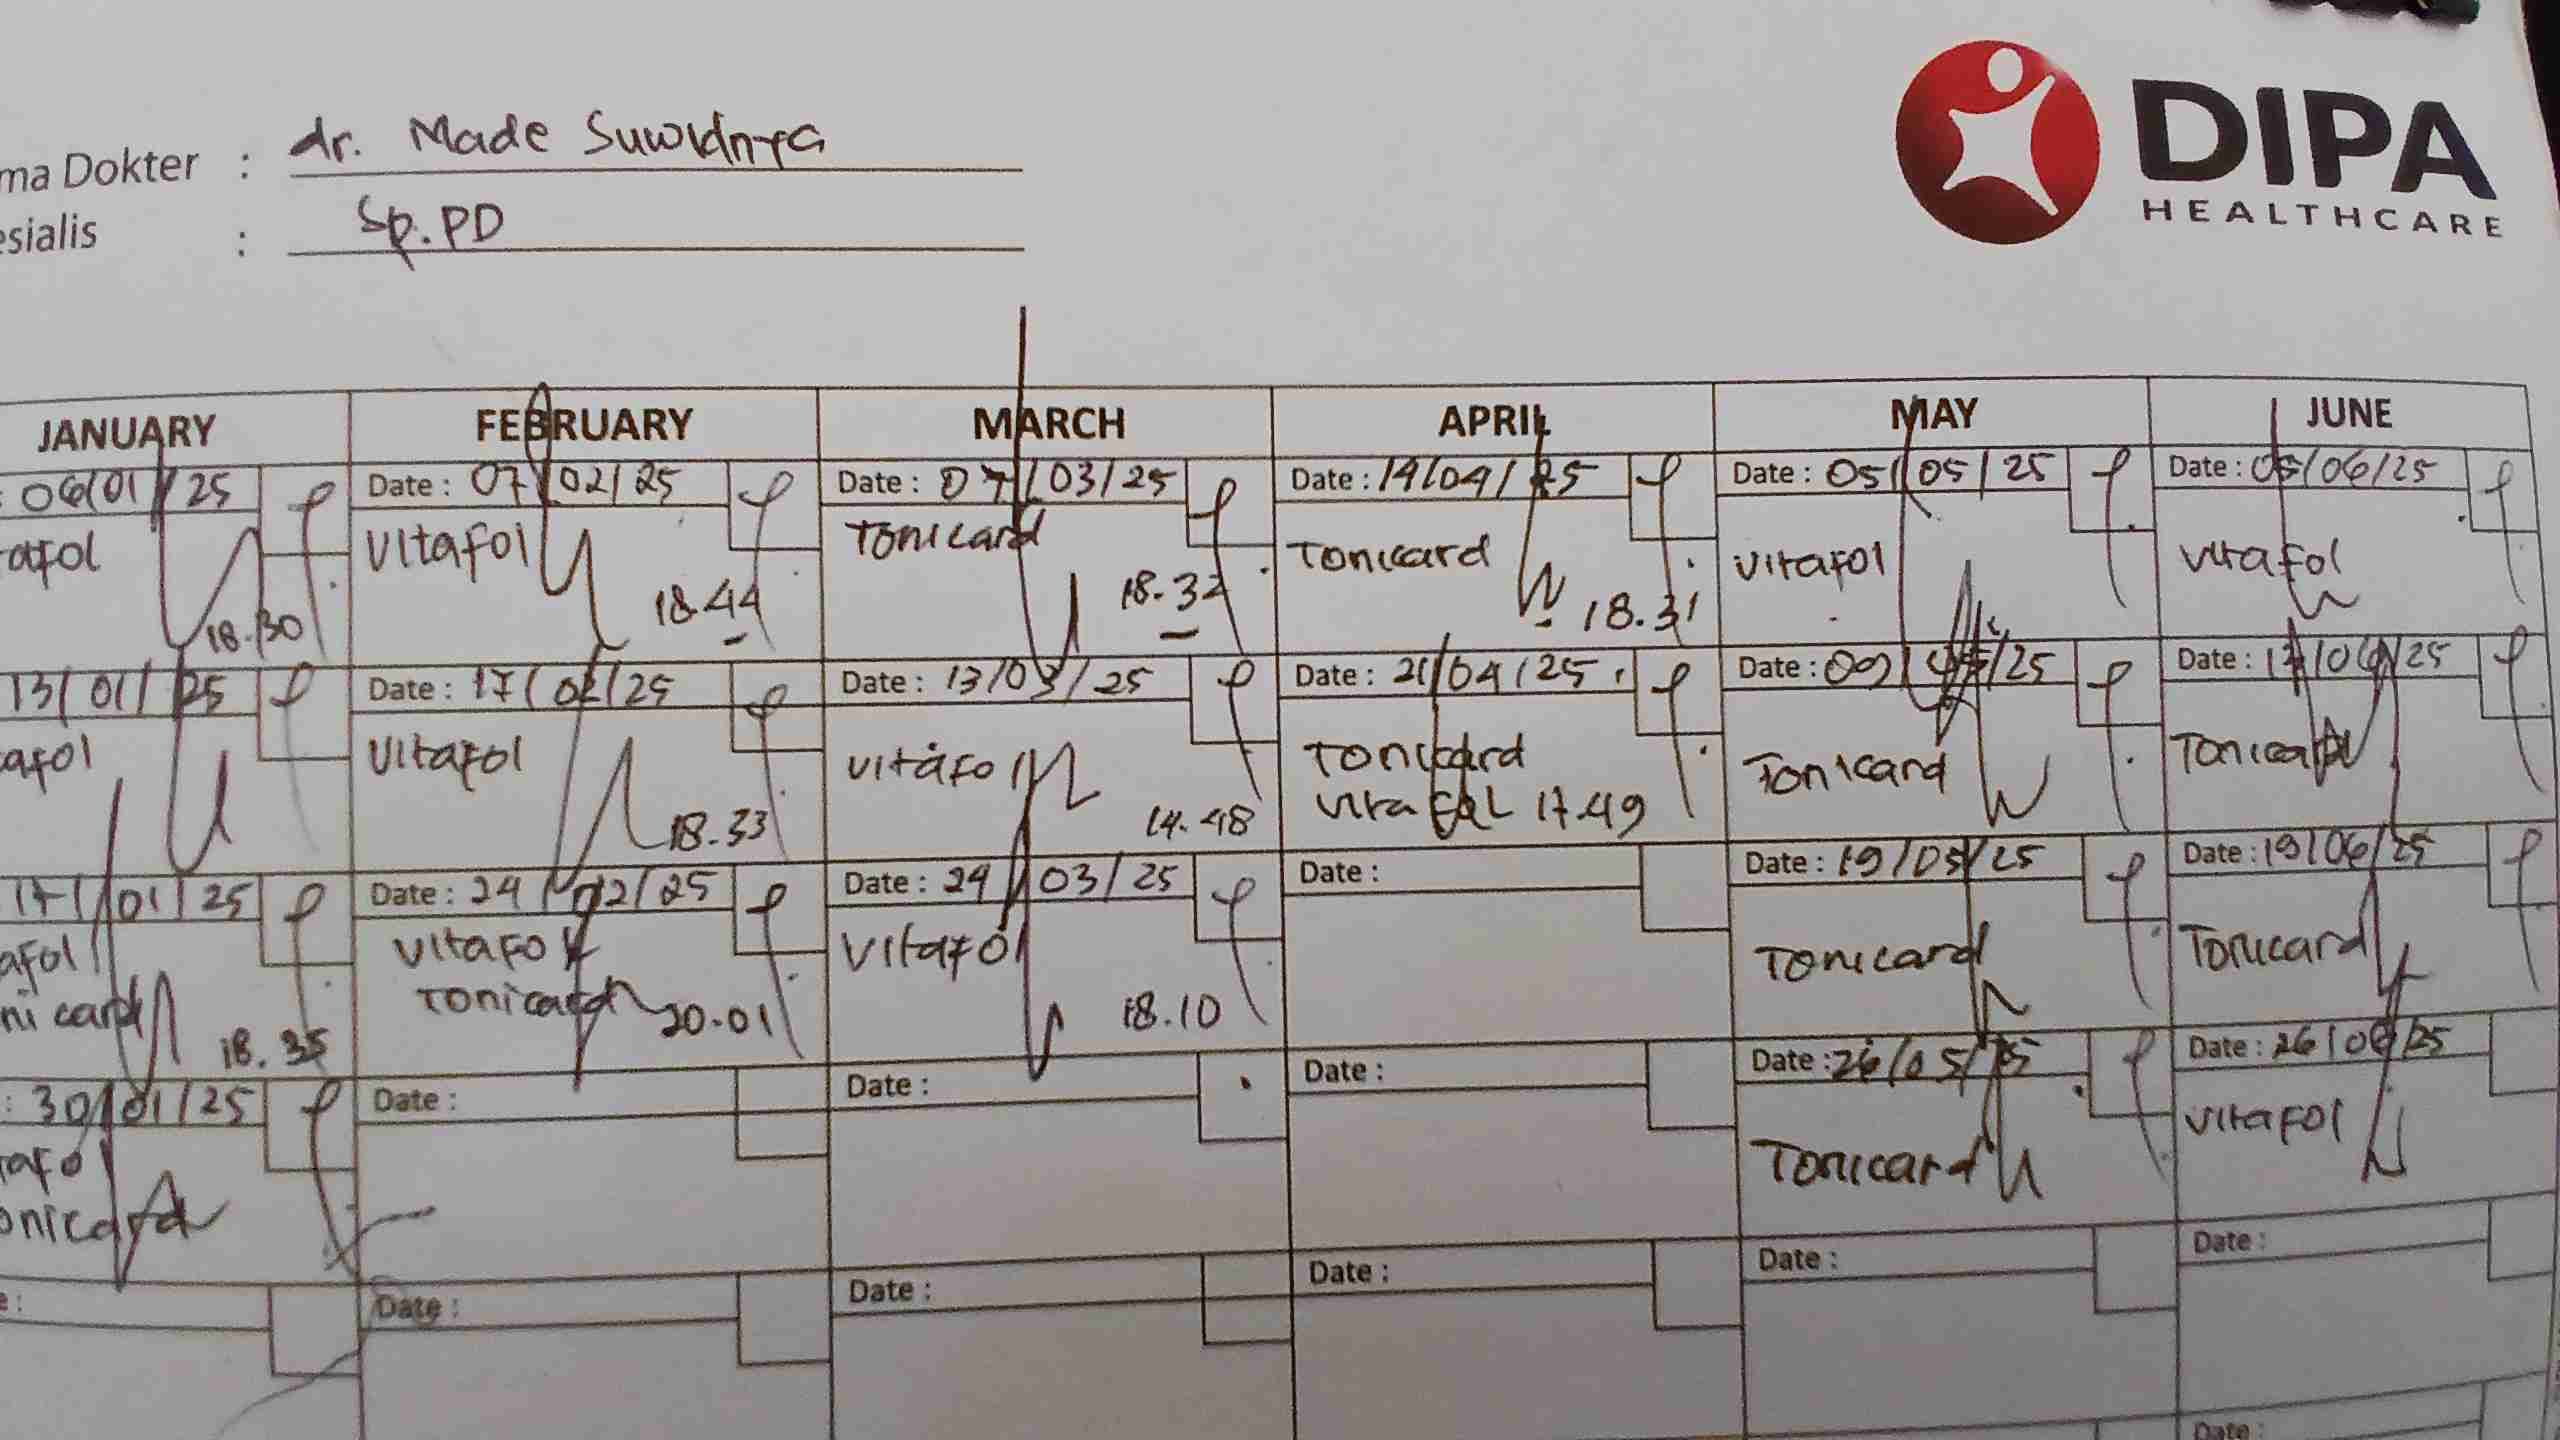 DIPA
HEALTHCARE
ma Dokter : dr. Made Suwidnya
esialis : Sp.PD
JANUARY FEBRUARY MARCH APRIL MAY JUNE
: 06/01/25 Date : 07/02/25 Date : 07/03/25 Date : 14/04/25 Date : 05/05/25 Date : 05/06/25
tafol Vitafol Tonicard Tonicard Vitafol Vitafol
18.30 18.44 18.32 18.31
13/01/25 Date : 17/02/25 Date : 13/03/25 Date : 21/04/25 Date : 09/05/25 Date : /06/25
afol Vitafol Vitafol Tonicard Tonicard Tonicard
Vitafol 17.49
18.33 14.48
17/01/25 Date : 24/02/25 Date : 24/03/25 Date : Date : 19/05/25 Date : 19/06/25
afol Vitafol Vitafol Tonicard Tonicard
nicard Tonicard
18.35 20.01 18.10
: 30/01/25 Date : Date : Date : Date : 26/05/25 Date : 26/06/25
tafol Tonicard Vitafol
onicard
e : Date : Date : Date : Date : Date :
Date :